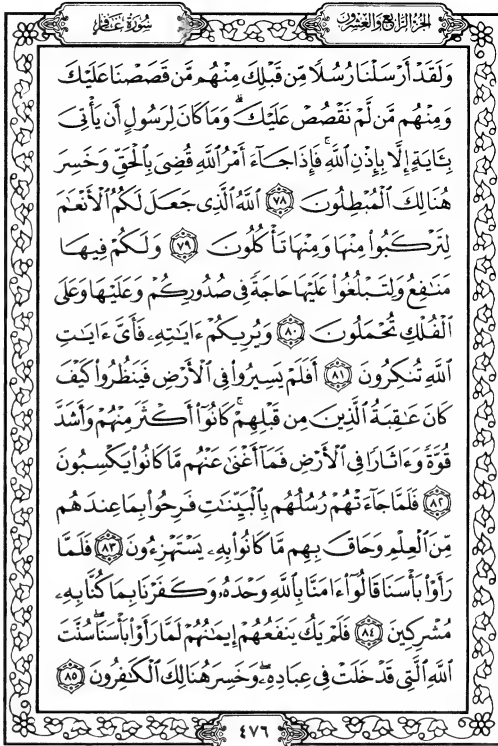 الجزء الرابع والعشرون
سورة غافر
وَلَقَدْ أَرْسَلْنَا رُسُلًا مِّن قَبْلِكَ مِنْهُم مَّن قَصَصْنَا عَلَيْكَ
وَمِنْهُم مَّن لَّمْ نَقْصُصْ عَلَيْكَ ۗ وَمَا كَانَ لِرَسُولٍ أَن يَأْتِيَ
بِـَٔايَةٍ إِلَّا بِإِذْنِ اللَّهِ ۚ فَإِذَا جَآءَ أَمْرُ اللَّهِ قُضِيَ بِالْحَقِّ وَخَسِرَ
هُنَالِكَ الْمُبْطِلُونَ ٧٨ اللَّهُ الَّذِي جَعَلَ لَكُمُ الْأَنْعَٰمَ
لِتَرْكَبُوا۟ مِنْهَا وَمِنْهَا تَأْكُلُونَ ٧٩ وَلَكُمْ فِيهَا
مَنَٰفِعُ وَلِتَبْلُغُوا۟ عَلَيْهَا حَاجَةً فِي صُدُورِكُمْ وَعَلَيْهَا وَعَلَى
الْفُلْكِ تُحْمَلُونَ ٨٠ وَيُرِيكُمْ ءَايَٰتِهِۦ فَأَيَّ ءَايَٰتِ
اللَّهِ تُنكِرُونَ ٨١ أَفَلَمْ يَسِيرُوا۟ فِي الْأَرْضِ فَيَنظُرُوا۟ كَيْفَ
كَانَ عَٰقِبَةُ الَّذِينَ مِن قَبْلِهِمْ ۚ كَانُوٓا۟ أَكْثَرَ مِنْهُمْ وَأَشَدَّ
قُوَّةً وَءَاثَارًا فِي الْأَرْضِ فَمَآ أَغْنَىٰ عَنْهُم مَّا كَانُوا۟ يَكْسِبُونَ
٨٢ فَلَمَّا جَآءَتْهُمْ رُسُلُهُم بِالْبَيِّنَٰتِ فَرِحُوا۟ بِمَا عِندَهُم
مِّنَ الْعِلْمِ وَحَاقَ بِهِم مَّا كَانُوا۟ بِهِۦ يَسْتَهْزِءُونَ ٨٣ فَلَمَّا
رَأَوْا۟ بَأْسَنَا قَالُوٓا۟ ءَامَنَّا بِاللَّهِ وَحْدَهُۥ وَكَفَرْنَا بِمَا كُنَّا بِهِۦ
مُشْرِكِينَ ٨٤ فَلَمْ يَكُ يَنفَعُهُمْ إِيمَٰنُهُمْ لَمَّا رَأَوْا۟ بَأْسَنَا ۖ سُنَّتَ
اللَّهِ الَّتِي قَدْ خَلَتْ فِي عِبَادِهِۦ ۖ وَخَسِرَ هُنَالِكَ الْكَٰفِرُونَ ٨٥
٤٧٦